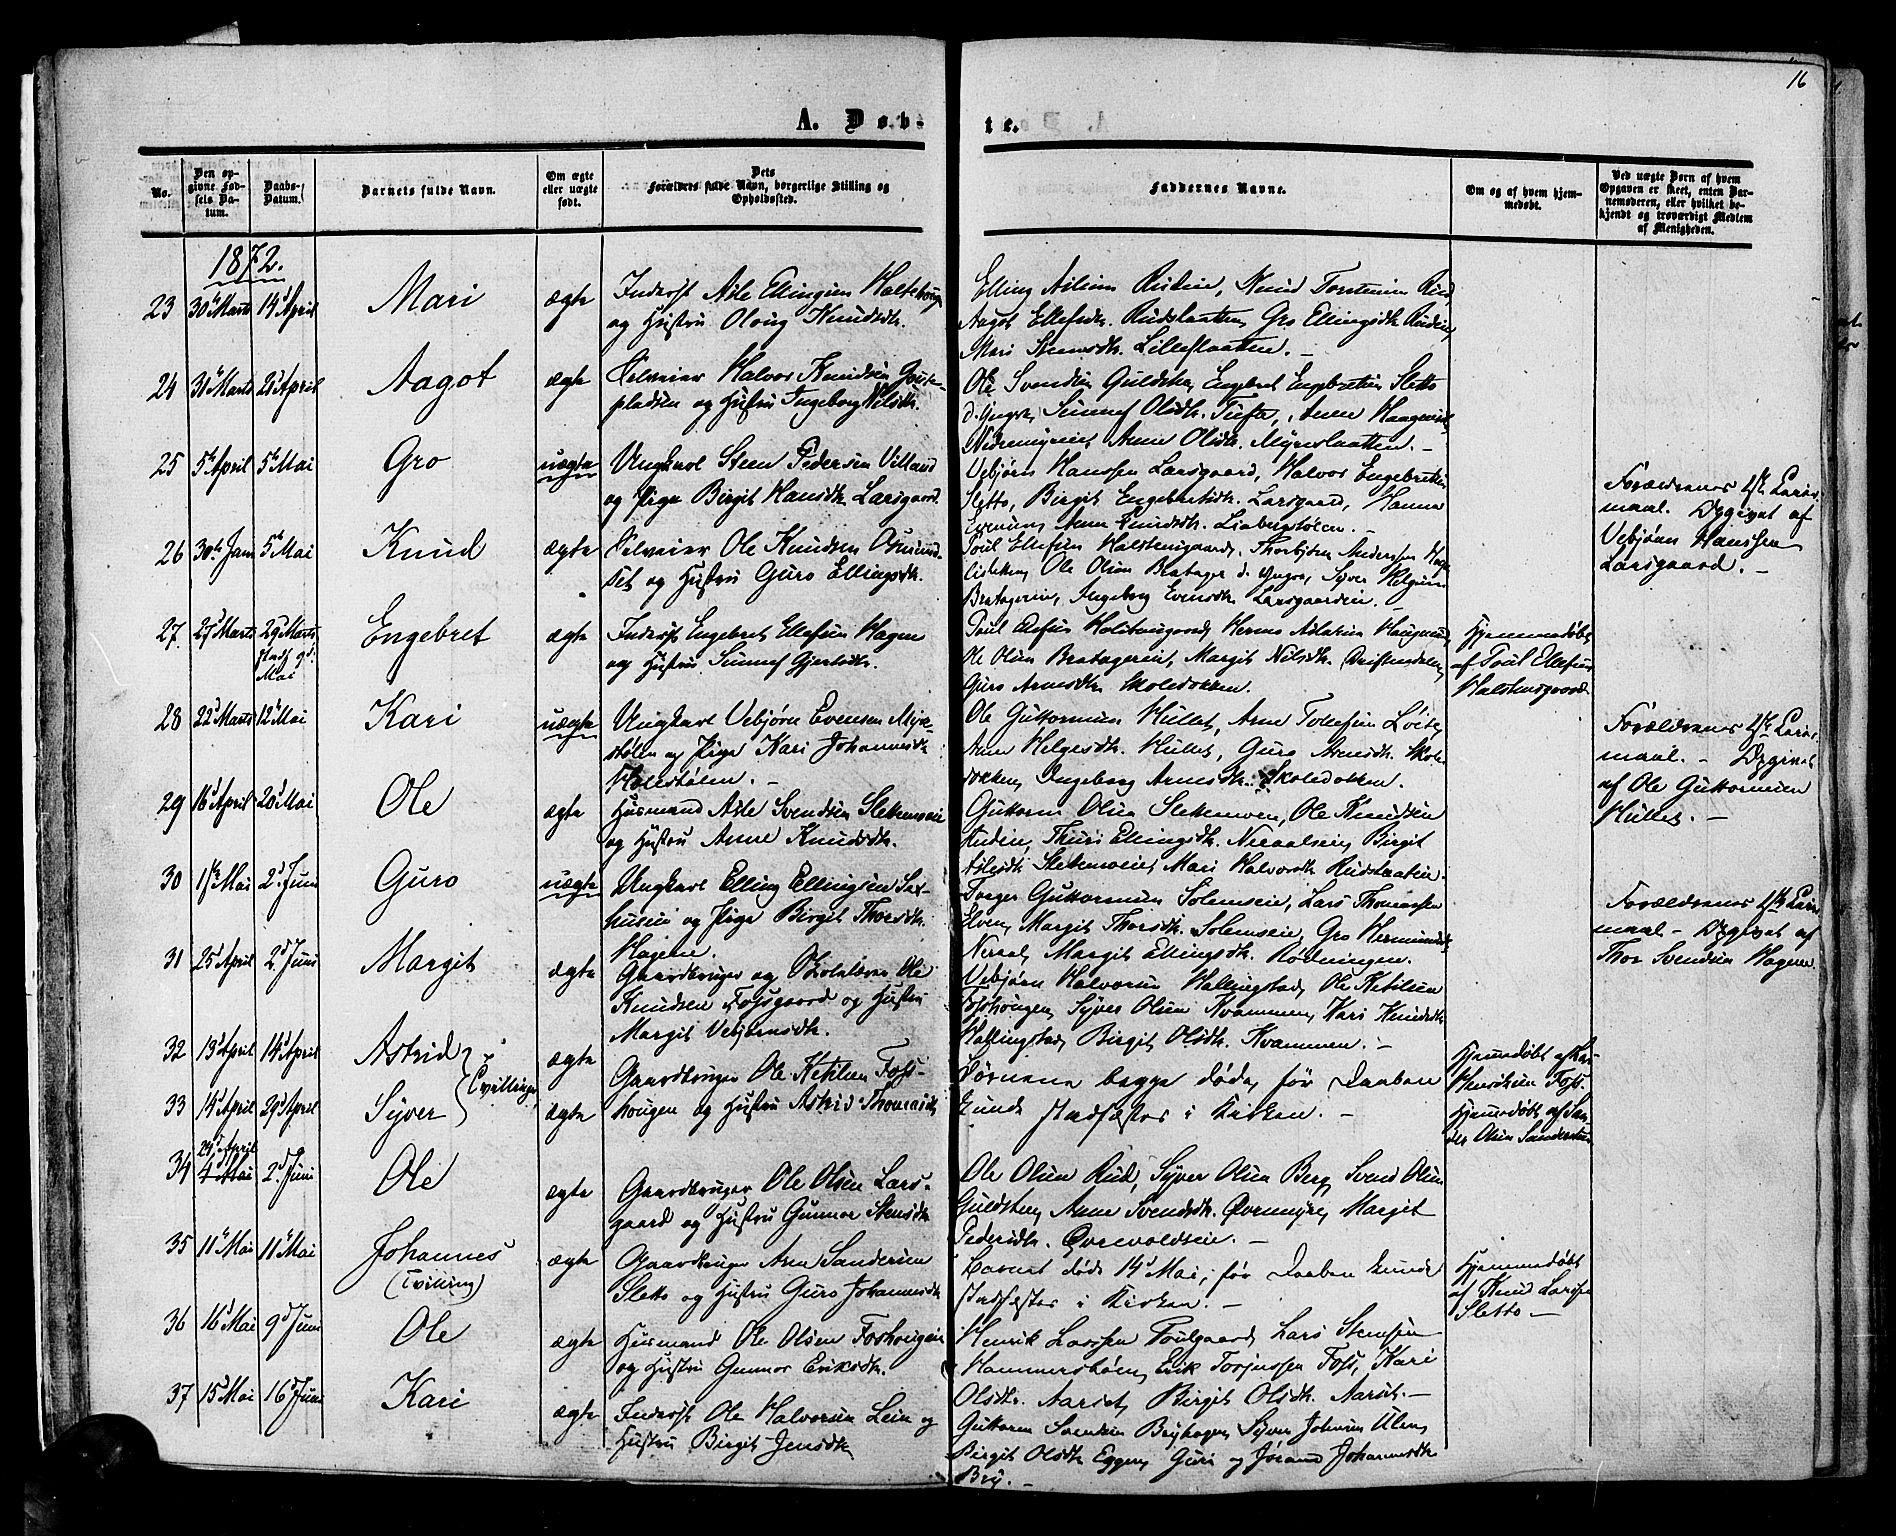 16
A. Døb-
te.
No.
Den op-
givne Fød-
sels Da-
tum.
Daabs-
Datum.
Barnets fulde Navn.
Om ægte
eller uægte
født.
Dets
Forældres fulde Navn, borgerlige Stilling og
Opholdssted.
Faddernes Navne.
Om og af hvem hjem-
medøbt.
Ved uægte Børn af hvem
Opgaven er skeet, enten Bar-
nemoderen, eller hvilket be-
kjendt og troværdigt Medlem
af Menigheden.
1872.
23 30te Marts 14d April Mari ægte Inderst Asle Ellingsen
og Hustru Oloug Knudsdtr.
Elling Knud Torstensen Rud,
Aagot Ellefsdtr. Rudslaatten, Gro Ellingsdtr.
Mari Steensdtr. Lilleslaatten. –
24 31te Marts 21d April Aagot ægte Selveier Halvor Knudsen
pladsen og Hustru Ingeborg Nilsdtr.
Ole Svendsen Engebret Engebretsen Sletto
d. Yngre, Sunnef Olsdtr. Tufte, Anne
Anne Olsdtr. Myreslaatten. –
25 5te April 5te Mai Gro uægte Ungkarl Steen Pedersen Villand
og Pige Birgit Hansdtr. Larsgaard.
Vebjørn Hanssen Larsgaard, Halvor Engebretsen
Sletto, Birgit Engebretsdtr. Larsgaard, Hanna
Evensen, Anne Knudsdtr. Liabergstølen. –
Forældrenes 1ste Leier-
maal. Opgivet af
Vebjørn Hanssen
Larsgaard. –
26 30te Jan 5te Mai Knud ægte Selveier Ole Knudsen
og Hustru Guro Ellingsdtr.
Poul Ellefsen Halstensgaard, Thorbjørn Anderssen
Ole Olsen Bratager d. Yngre, Syver Helgesen
Brategerein, Ingeborg Evensdtr. Larsgaardein. –
27. 27d Marts 29d Marts
Stadf. 9d
Mai
Engebret ægte Inderst Engebret Ellefsen Hagen
og Hustru Sunnef Gjertsdtr.
Poul Ellefsen
Ole Olsen Margit Nilsdtr.
Guro Arnesdtr. Skoledokken.
Hjemmedøbt
af Poul Ellefsen
Halstensgaard.
28 22d Marts 12te Mai Kari uægte Ungkarl Vebjørn Evensen Myre-
stølen og Pige Kari Johannesdtr.
Ole Guttormsen Hullet, Arne Tollefsen
Anne Helgesdtr. Hullet, Guro Arnesdtr. Skole-
dokken, Ingeborg Arnesdtr. Skoledokken.
Forældrenes 1ste Leier-
maal. – Opgivet
af Ole Guttormsen
Hullet. –
29 16d April 20d Mai Ole ægte Husmand Asle Svendsen
og Hustru Anne Knudsdtr.
Guttorm Olsen Ole Knudsen
Thuri Ellingsdtr. Birgit
Aslesdtr. Mari Halvorsdtr. Rudslaatten.
30 1ste Mai 2d Juni Guro uægte Ungkarl Elling Ellingsen
og Pige Birgit Thorsdtr.
Hagen.
Guttormsen Lars Thomassen
Elven, Margit Thorsdtr. Gro Hermundsdtr.
Margit Ellingsdtr. Rødningen.
Forældrenes 1ste Leier-
maal – Opgivet af
Thor Svendsen Hagen.
31 25d April 2d Juni Margit ægte Gaardbruger og Skolelærer Ole
Knudsen Fossgaard og Hustru
Margit Vebjørnsdtr.
Vebjørn Halvorsen Hallingstad, Ole Ketilsen
Foshougen, Syver Olsen Kvammen, Kari Knudsdtr.
Hallingstad, Birgit Olsdtr. Kvammen. –
32 13d April 14d April Astrid
Tvillinger
ægte Gaardbruger Ole Ketilsen Foss-
hougen og Hustru Astrid Thomasdtr.
Børnene begge døde før Daaben
kunde stadfæstes i Kirken. –
Hjemmedøbt af
Foss.
33 14d April 29d April Syver ægte
Hjemmedøbt af San-
der Olsen
34 29d April
4 Mai
2d Juni Ole ægte Gaardbruger Ole Olsen Lars-
gaard og Hustru Gunnor Stensdtr.
Ole Olsen Rud, Syver Olsen Berg, Svend Olsen
Anne Svendsdtr. Øvremyre, Margit
Pedersdtr.
35 11te Mai 11te Mai Johannes
(Tvilling)
ægte Gaardbruger Arne Sandersen
Sletto og Hustru Guro Johannesdtr.
Barnet døde 14d Mai, før Daaben kunde
stadfæstes i Kirken. –
Hjemmedøbt
af Knud Larssen
Sletto –
36 16d Mai 9d Juni Ole ægte Husmand Ole Olsen Foshougen
og Hustru Gunnor Eriksdtr.
Henrik Larssen Lars Stensen
Hammersbøen, Erik Torjussen Foss, Kari
Olsdtr. Aaret, Birgit Olsdtr. Aaret. –
37 15d Mai 16d Juni Kari ægte Inderst Ole Halvorsen Lein og
Hustru Birgit Jensdtr.
Guttorm Svendsen Syver Johnsen
Birgit Olsdtr. Eggen, Guri og Jørand Johannesdtr.
Bry. –